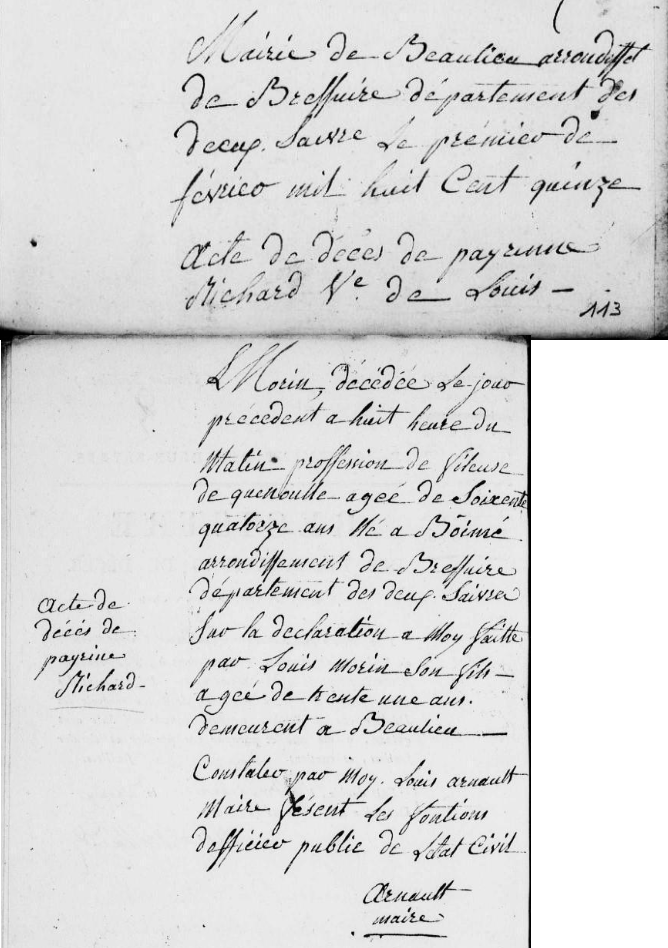 Mairie de Beaulieu arrondisset
de Bressuire département des
deux. Saivre Le premier de
février mil huit Cent quinze
acte de décès de payrinne
Richard Ve. de Louis —
113
Morin, décédée Le jour
précédent a huit heure du
Matin. proffession de fileuse
de quenoulle agée de Soixente
quatorze ans Né a Boimé
arrondissement de Bressuire
département des deux. Saivres
Sur la declaration a Moy faitte
par Louis Morin Son fils —
agée de trente une ans.
demeurent a Beaulieu —
Constater par Moy. Louis arnault
Maire fésent Les fontions
d'officier public de Létat Civil
Arnault
maire
acte de
décés de
payrine
Richard —